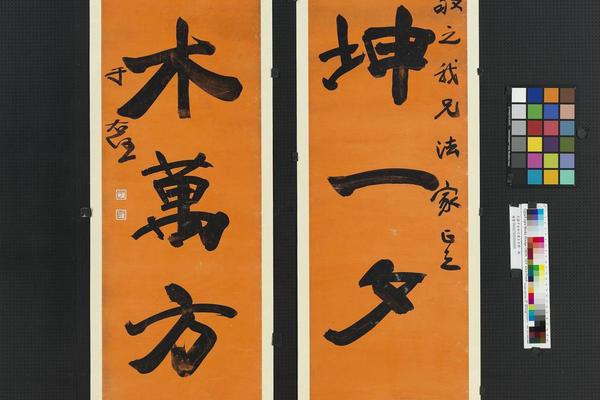 敬之我兄法家正之
坤一夕
木萬方
于右任